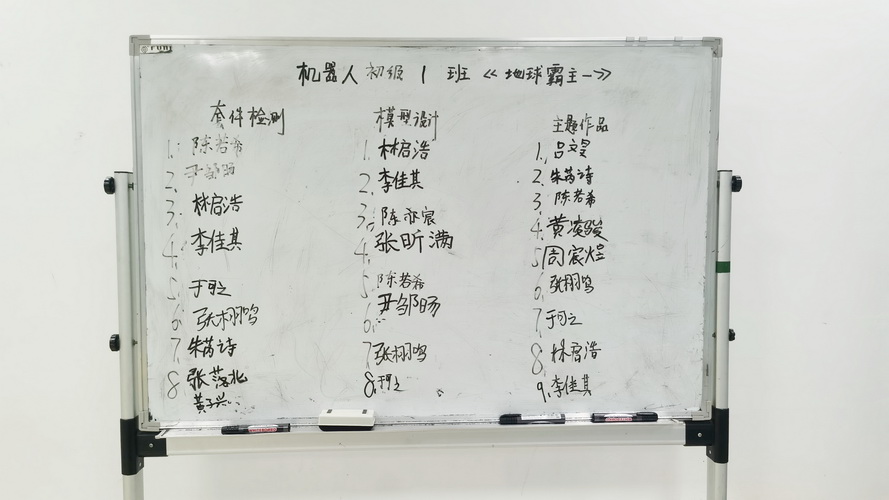 机器人初级1班《地球霸主一》
套件检测
1. 陈若希
2. 尹邹旸
3. 林启浩
4. 李佳其
5. 于
6. 张栩鸣
7. 朱芮诗
8 张落北
黄子兴
模型设计
1. 林启浩
2. 李佳其
3. 陈亦宸
4. 张昕满
5 陈若希
6. 尹邹旸
7. 张栩鸣
8. 于
主题作品
1. 吕文昊
2. 朱芮诗
3. 陈若希
4. 黄凌骏
5 周宸
6. 张栩鸣
7. 于
8. 林启浩
9. 李佳其